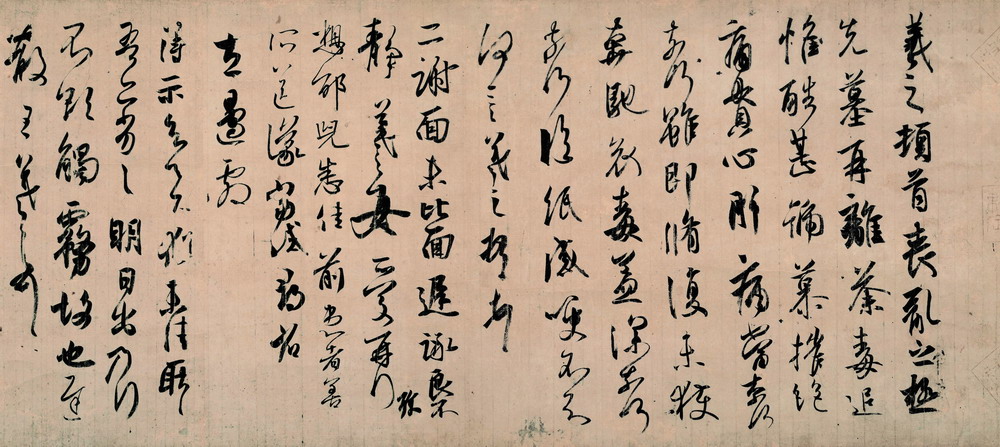 羲之頓首喪亂之極
先墓再離荼毒追
惟酷甚號慕摧絕
痛貫心肝痛當奈何
奈何雖即脩復未獲
奔馳哀毒益深奈何
奈何臨紙感哽不知
何言羲之頓首頓首
二謝面未比面遲詠良不
靜羲之女愛再拜
想邵兒悉佳前患者善
所送議
左邊劇
得示知足下猶未佳耿耿
吾亦劣劣明日出乃行
不欲觸霧故也遲
散王羲之頓首